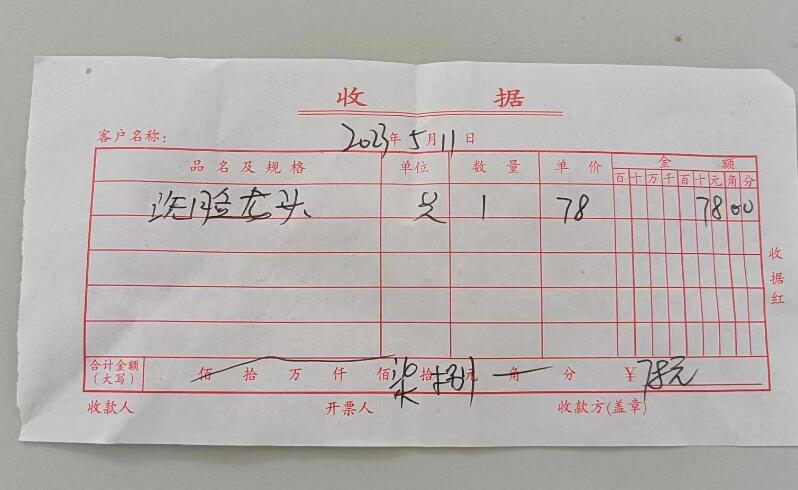 收 据
客户名称: 2023年5月11日
品名及规格 单位 数量 单价 金额
百十万千百十元角分
洗脸龙头 只 1 78 7800
合计金额(大写) 佰 拾 万 仟 佰 拾 元 角 分 ¥78元
收款人 开票人 收款方(盖章)
收据红